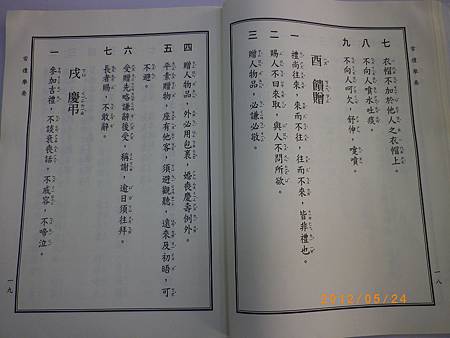 常禮舉要
七 衣帽不加於他人之衣帽上。
八 不向人噴水吐痰。
九 不向人呵欠,舒伸,嚏噴。
酉 饋贈
一 禮尚往來,來而不往,往而不來,皆非禮也。
二 賜人不曰來取,與人不問所欲。
三 贈人物品,必謙必敬。
一八
常禮舉要
四 贈人物品,外必用包裹,婚喪慶壽例外。
五 平素贈物,座有他客,須避觀聽,遠來及初晤,可
不避。
六 受贈先略謙辭後受,稱謝,逾日須往拜。
七 長者賜,不敢辭。
戌 慶弔
一 參加吉禮,不談衰喪話,不戚容,不啼泣。
一九
2012/05/24